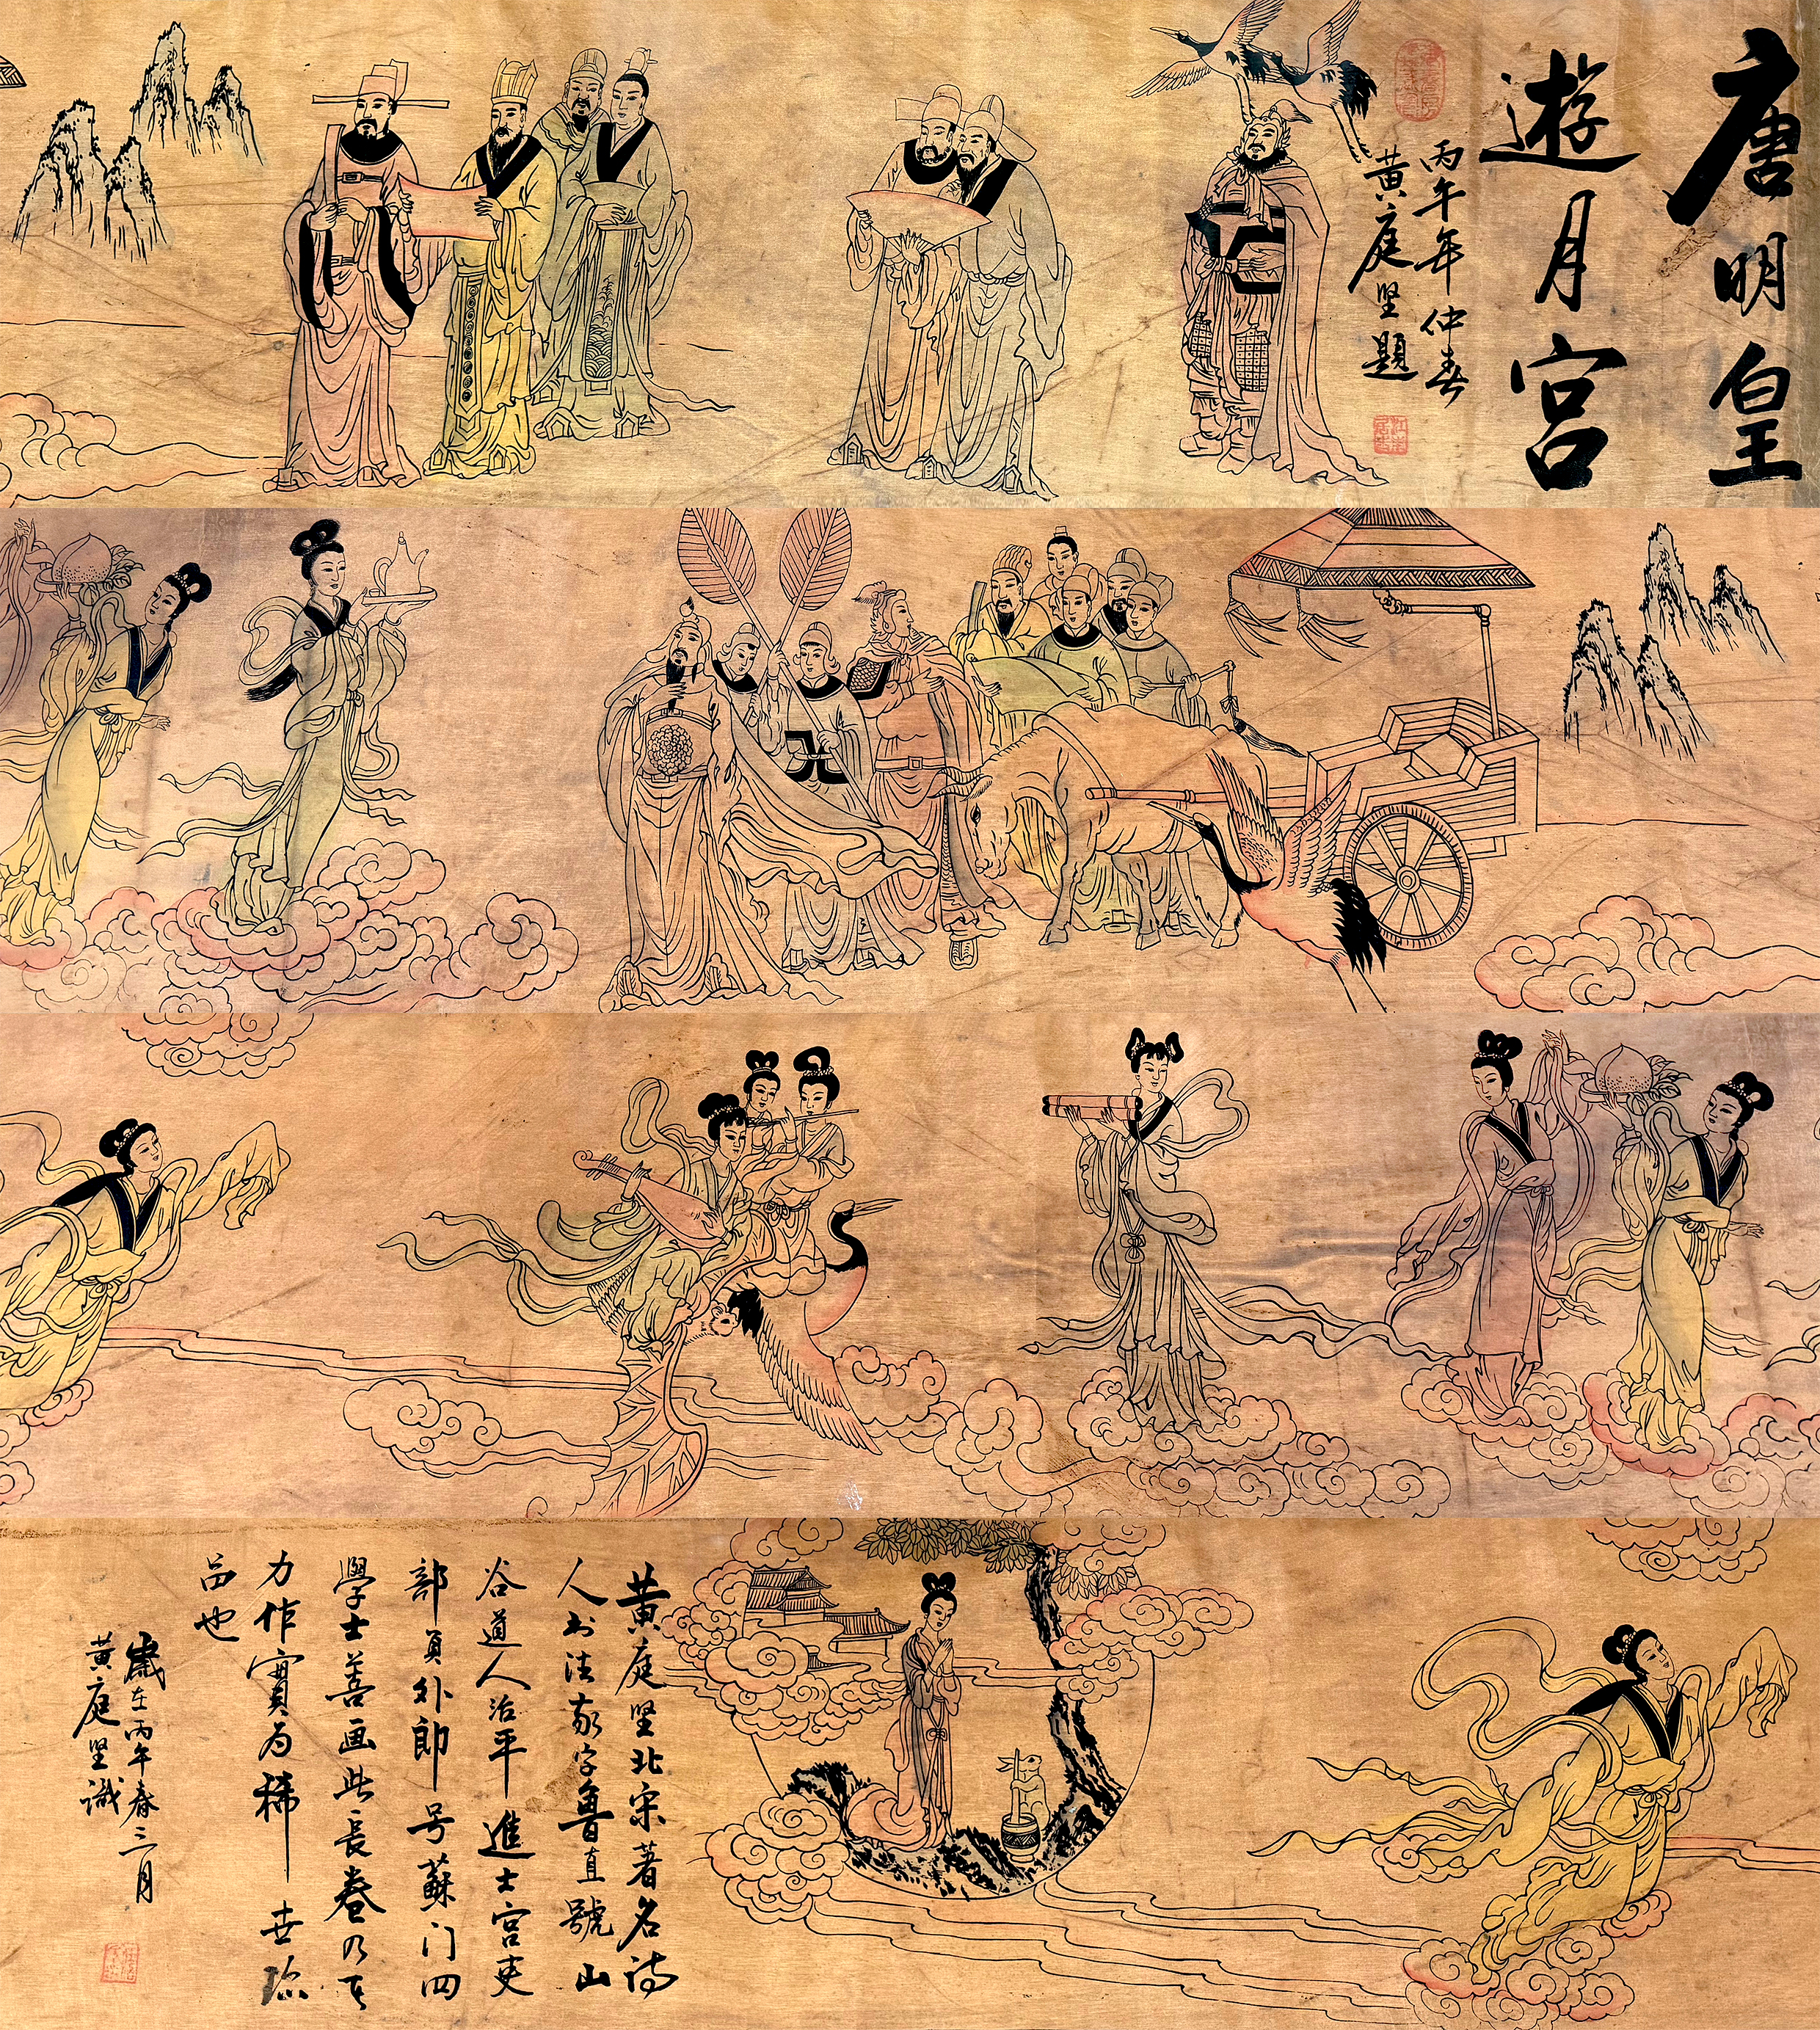 唐明皇
遊月宫
丙午年仲春
黄庭坚題
黄庭坚北宋著名诗
人书法家字魯直號山
谷道人治平進士官吏
部員外郎号蘇门四
學士善画此長卷乃其
力作實为稀世珍
品也
歲在丙午春三月
黄庭坚識